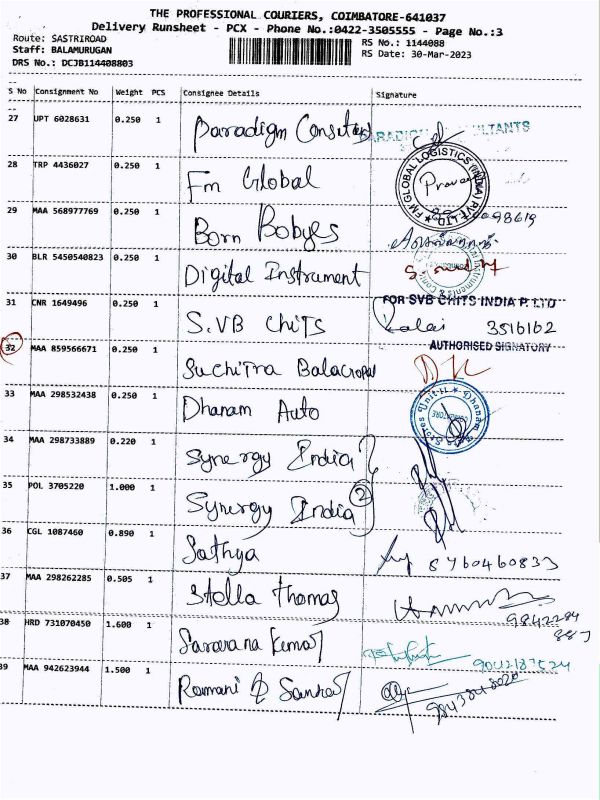 THE PROFESSIONAL COURIERS, COIMBATORE-641037
Delivery Runsheet - PCX - Phone No.:0422-3505555 - Page No.:3
Route: SASTRIROAD
RS No.: 1144088
Staff: BALAMURUGAN
RS Date: 30-Mar-2023
DRS No.: DCJB114408803
S No Consignment No Weight PCS Consignee Details Signature
27 UPT 6028631 0.250 1 Paradigm
28 TRP 4436027 0.250 1 Fm Global FM GLOBAL LOGISTICS (INDIA) PVT LTD
29 MAA 568977769 0.250 1 Born Bobyes
30 BLR 5450540823 0.250 1 Digital Instrument
31 CNR 1649496 0.250 1 S.VB Chits FOR SVB CHITS INDIA P. LTD
Kalai 3516162
AUTHORISED SIGNATORY
32 MAA 859566671 0.250 1 Suchitra Balagopal
33 MAA 298532438 0.250 1 Dhanam Auto Stores Unit-II Dhanam
34 MAA 298733889 0.220 1 Synergy India
35 POL 3705220 1.000 1 Synergy India 2
36 CGL 1087460 0.890 1 Sathya 8760460833
37 MAA 298262285 0.505 1 Stella Thomas
38 HRD 731070450 1.600 1 Saravana Kumar
39 MAA 942623944 1.500 1 Ramani